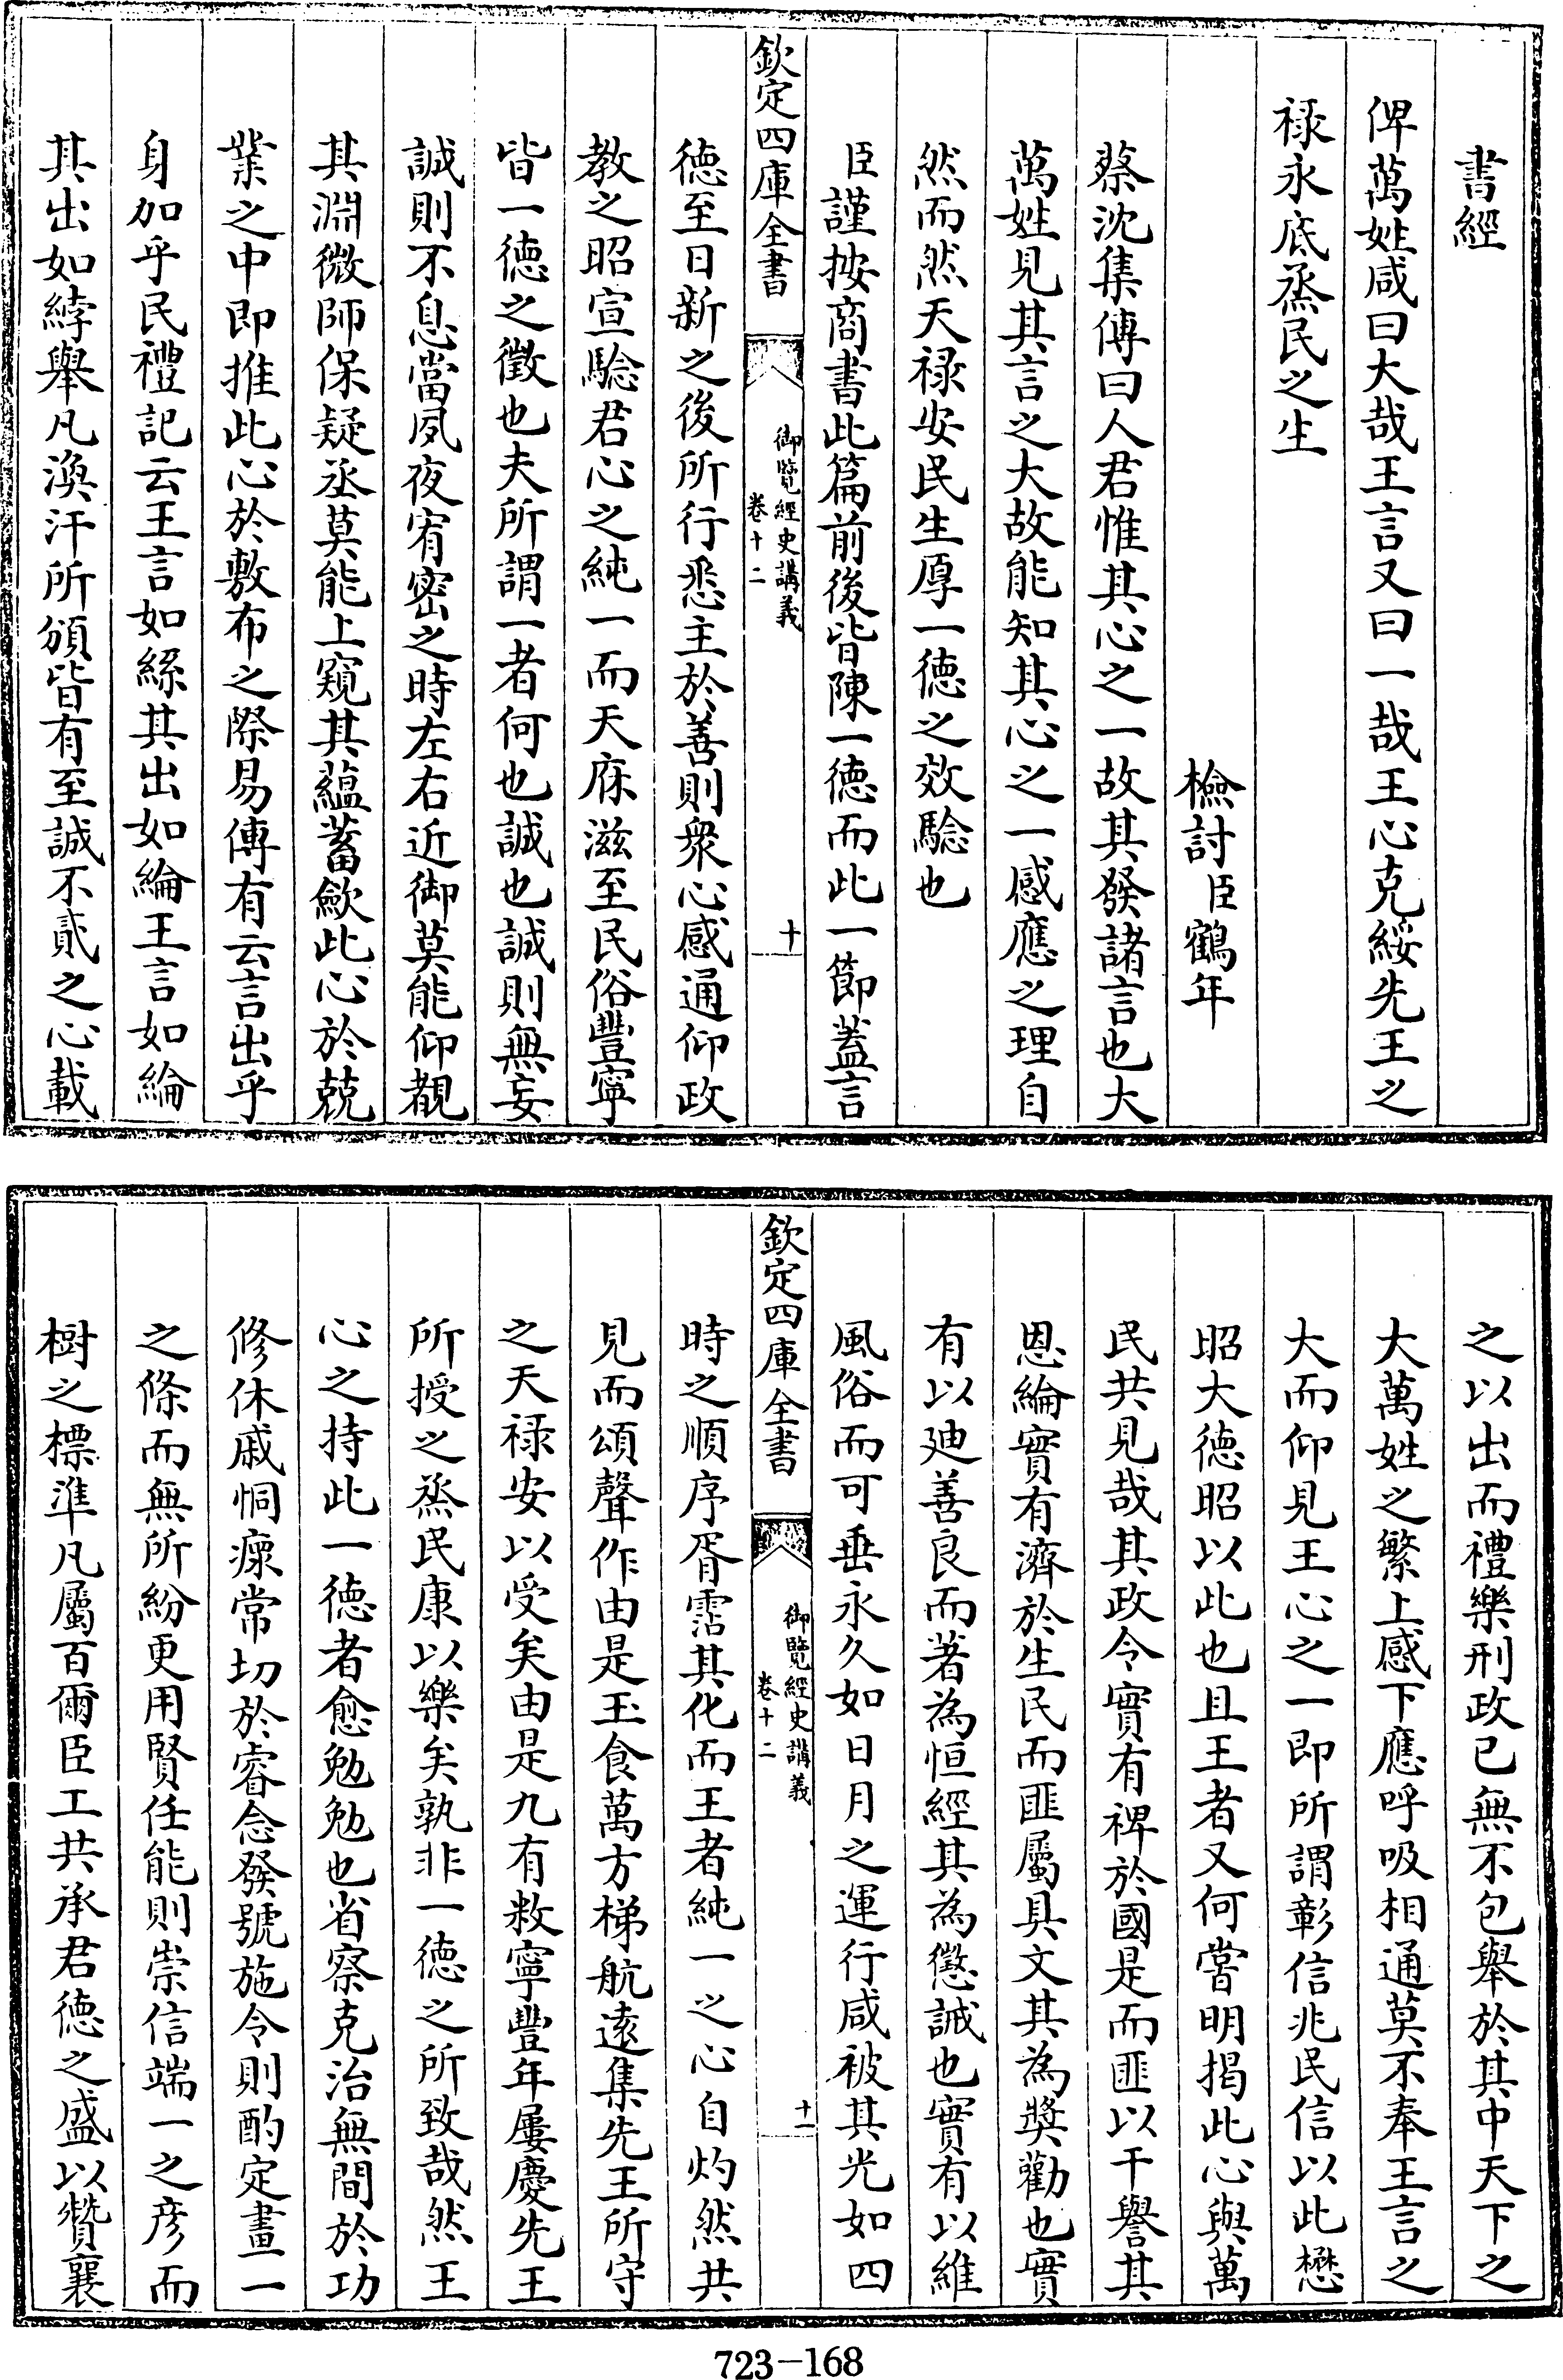 書經
俾萬姓咸曰大哉王言又曰一哉王心克綏先王之
禄永底烝民之生
檢討臣鶴年
蔡沈集傳曰人君惟其心之一故其發諸言也大
萬姓見其言之大故能知其心之一感應之理自
然而然天禄安民生厚一德之效驗也
臣謹按商書此篇前後皆陳一德而此一節蓋言
欽定四庫全書
御覽經史講義
卷十二
十
德至日新之後所行悉主於善則衆心感通仰政
教之昭宣驗君心之純一而天庥滋至民俗豐寧
皆一德之徵也夫所謂一者何也誠也誠則無妄
誠則不息當夙夜宥密之時左右近御莫能仰覩
其淵微師保疑丞莫能上窺其蘊蓄歛此心於兢
業之中即推此心於敷布之際易傳有云言出乎
身加乎民禮記云王言如絲其出如綸王言如綸
其出如綍舉凡渙汗所頒皆有至誠不貳之心載
之以出而禮樂刑政已無不包舉於其中天下之
大萬姓之繁上感下應呼吸相通莫不奉王言之
大而仰見王心之一即所謂彰信兆民信以此懋
昭大德昭以此也且王者又何嘗明揭此心與萬
民共見哉其政令實有裨於國是而匪以干譽其
恩綸實有濟於生民而匪屬具文其為奬勸也實
有以廸善良而著為恒經其為懲誡也實有以維
風俗而可垂永久如日月之運行咸被其光如四
欽定四庫全書
御覽經史講義
卷十二
十一
時之順序胥霑其化而王者純一之心自灼然共
見而頌聲作由是玉食萬方梯航遠集先王所守
之天禄安以受矣由是九有敉寧豐年屢慶先王
所授之烝民康以樂矣孰非一德之所致哉然王
心之持此一德者愈勉勉也省察克治無間於功
修休戚恫瘝常切於睿念發號施令則酌定畫一
之條而無所紛更用賢任能則崇信端一之彦而
樹之標準凡屬百爾臣工共承君德之盛以贊襄
723-168